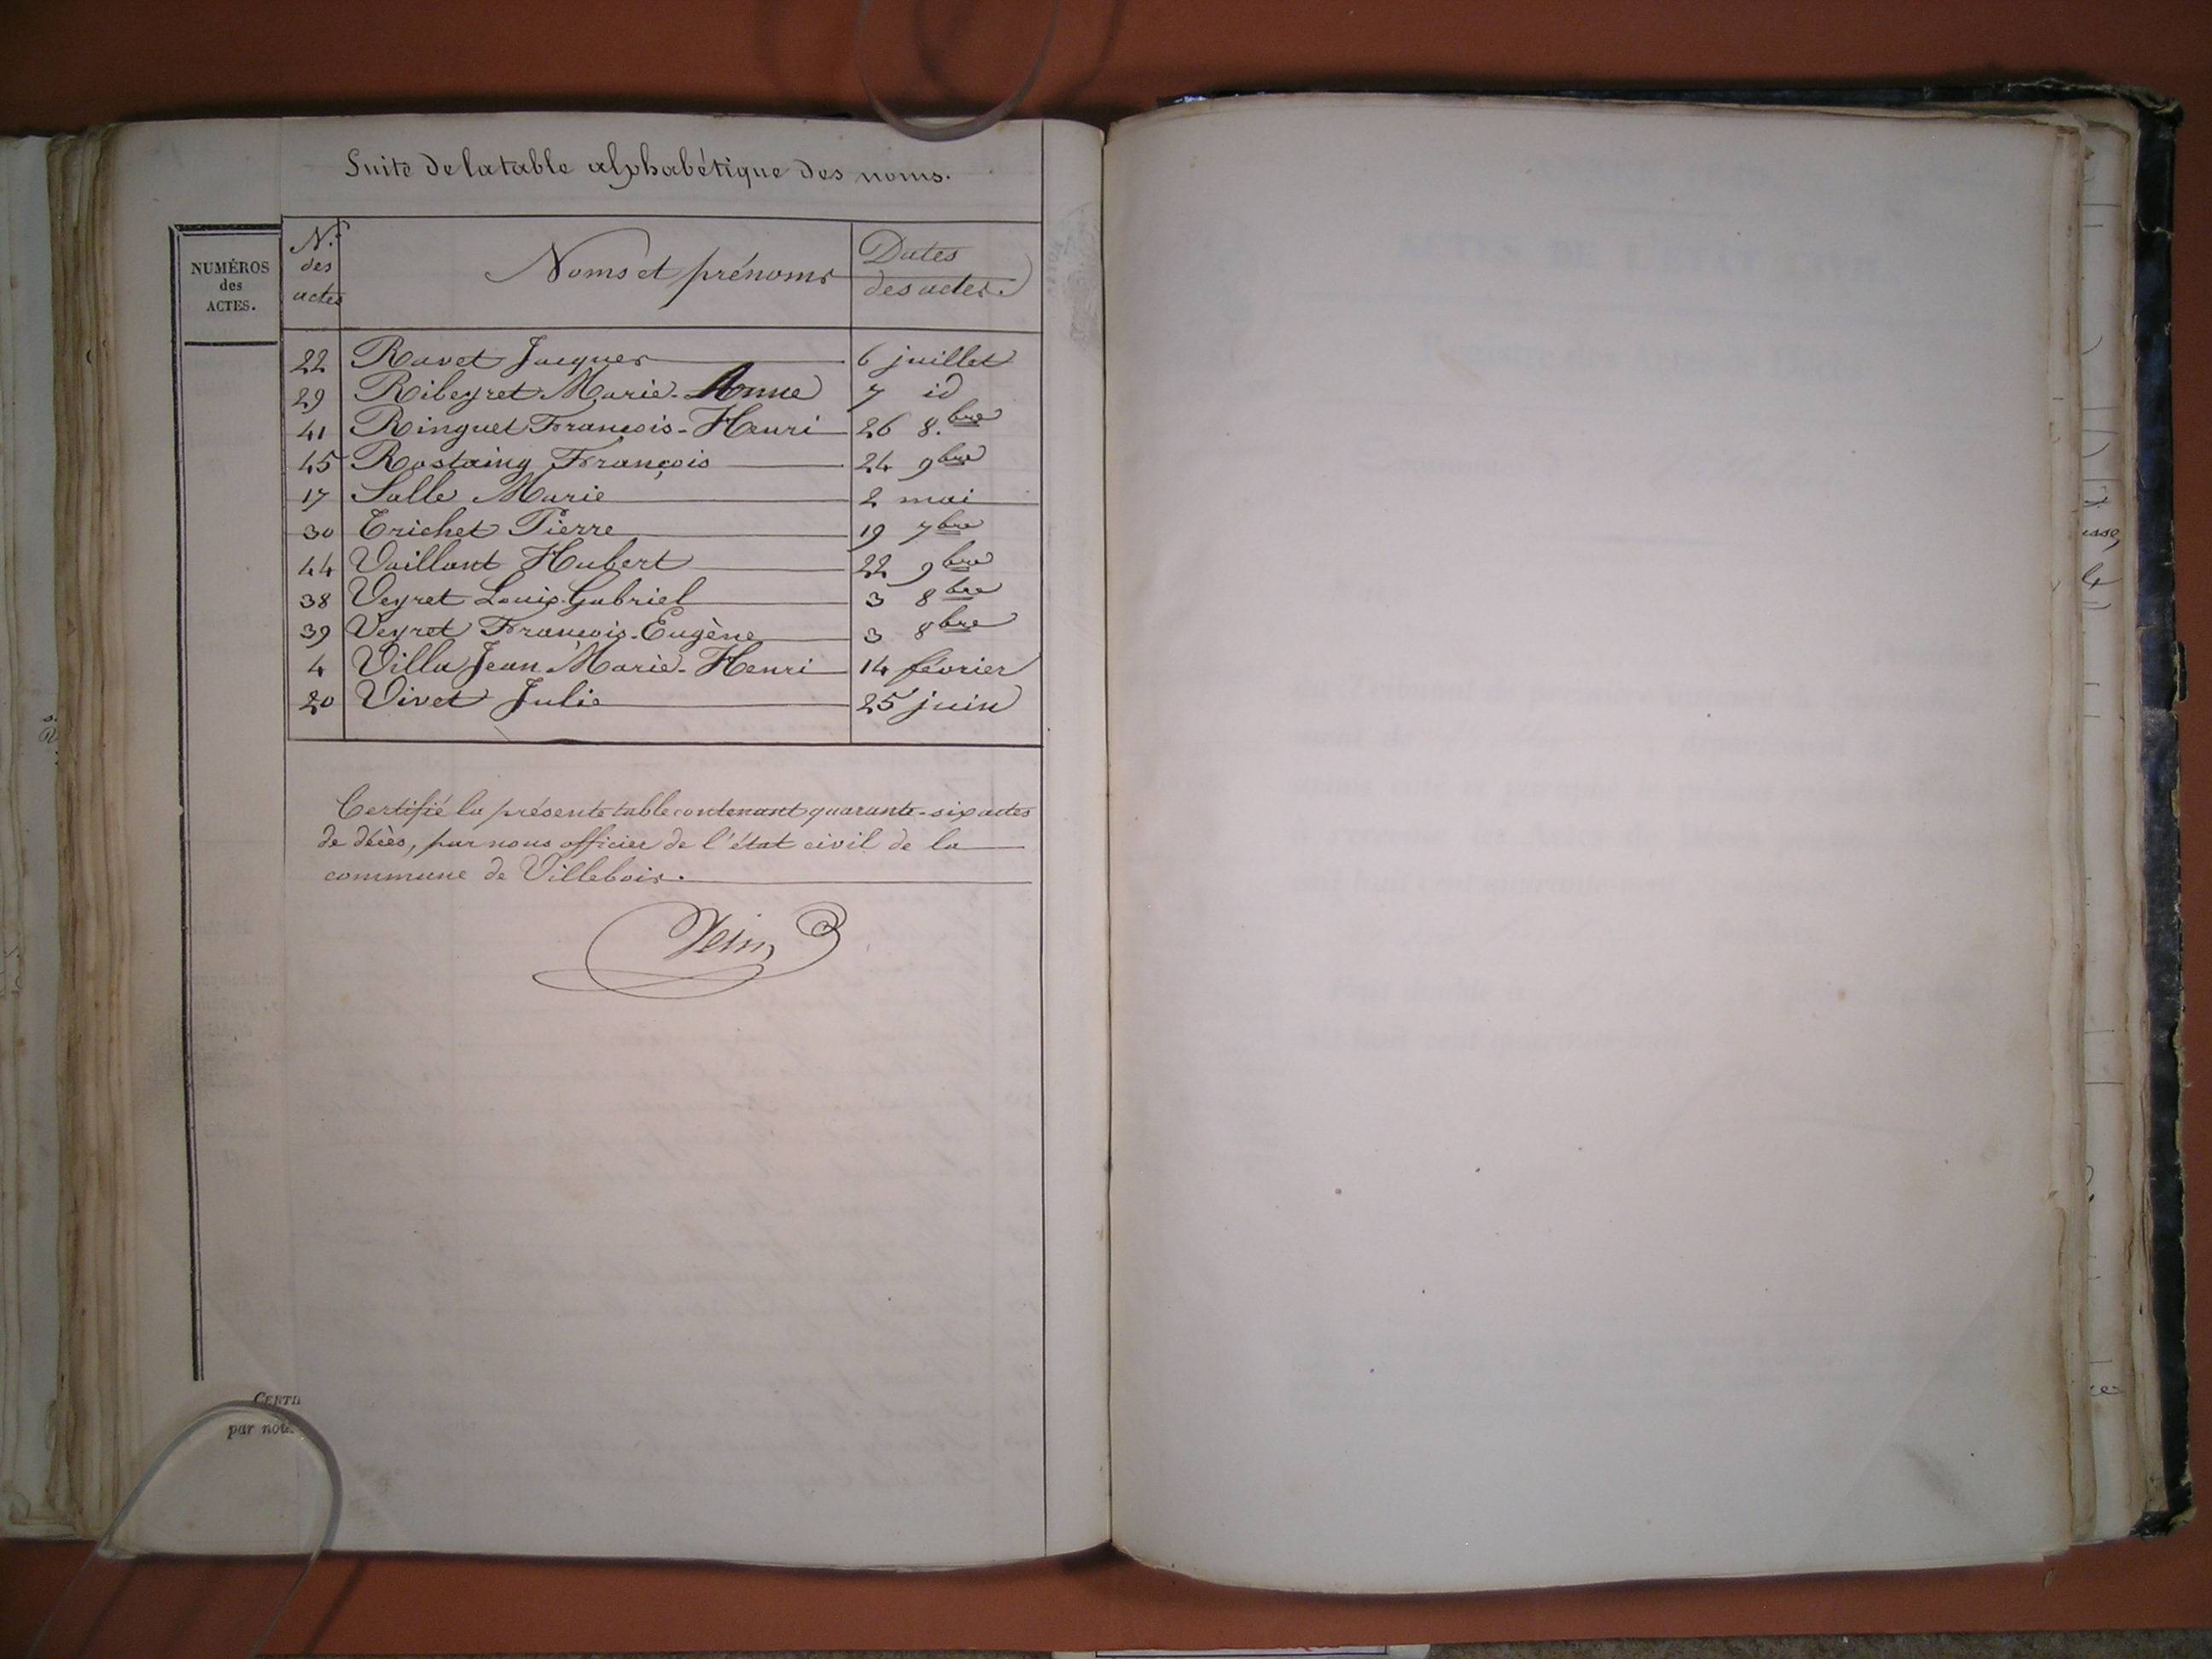 Suite de la table alphabétique des noms.
NUMÉROS
des
ACTES.
N.os
des
actes
Noms et prénoms
Dates
des actes.
22 Ravet Jacques 6 juillet
29 Ribeyret Marie-Anne 7 id
41 Ringuet François-Henri 26 8.bre
45 Rostaing François 24 9bre
17 Salle Marie 2 mai
30 Trichet Pierre 19 7bre
44 Vaillant Hubert 22 9bre
38 Veyret Louis-Gabriel 3 8bre
39 Veyret François-Eugène 3 8bre
4 Villa Jean-Marie-Henri 14 février
20 Vivet Julie 25 juin
Certifié la présente table contenant quarante-six actes
de décès, par nous officier de l'état civil de la
commune de Villebois.
CERTI
par nou